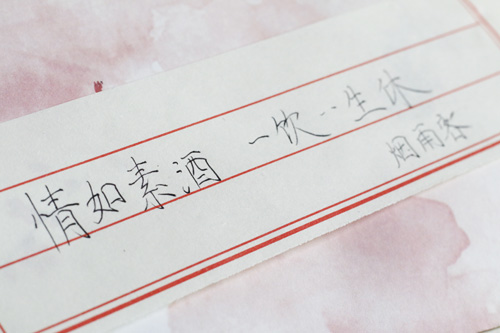 情如素酒 一饮··生休
烟雨客